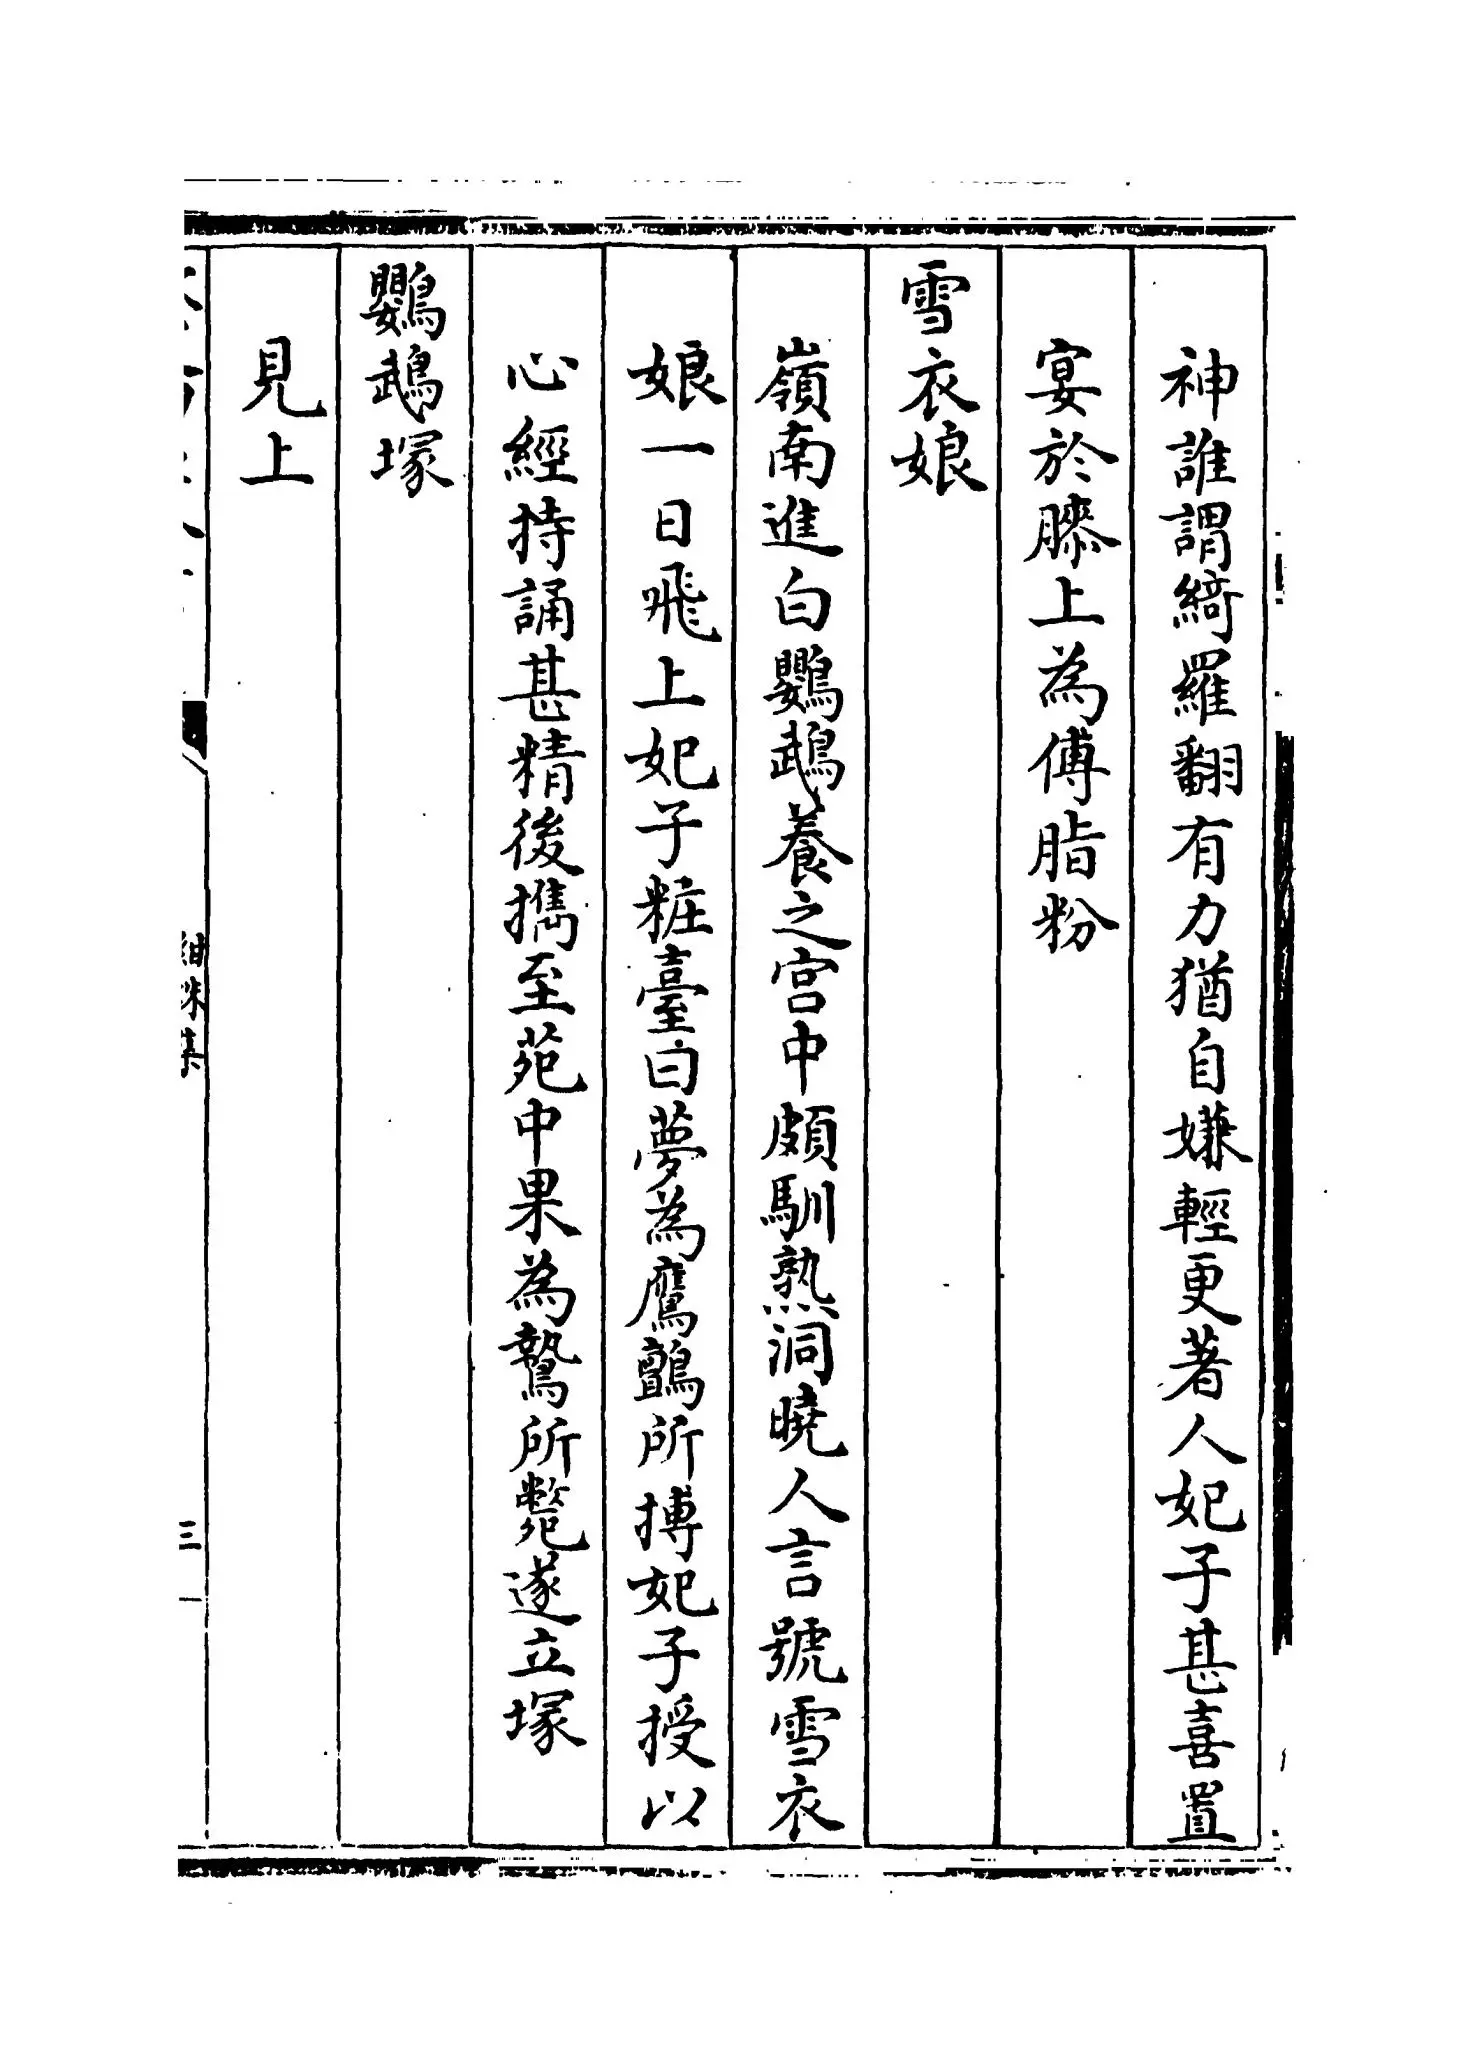 神誰謂綺羅翻有力猶自嫌輕更著人妃子甚喜置
宴於膝上為傅脂粉
雪衣娘
嶺南進白鸚鵡養之宮中頗馴熟洞曉人言號雪衣
娘一日飛上妃子粧臺曰夢為鷹鸇所搏妃子授以
心經持誦甚精後攜至苑中果為鷙所斃遂立塚
鸚鵡塚
見上
紺珠集
三